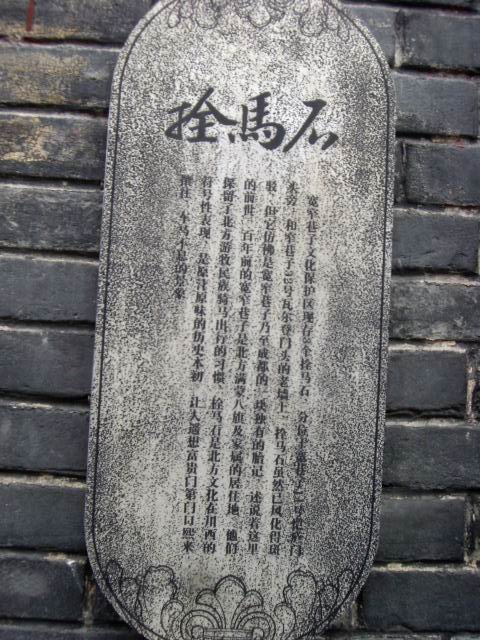 拴馬石
宽窄巷子文化保护区现存 拴马石 分 于宽巷子
头旁 和窄巷子32号瓦尔登门头的老墙上 拴马石虽然已风化得斑
驳 但它仿佛是宽窄巷子乃至成都的一块独有的胎记 述说着这里
的前世 百年前的宽窄巷子是北方满蒙八旗及家属的居住地 他们
保留了北方游牧民族骑马出行的习惯 拴马石是北方文化在川西的
符号性表现 是原汁原味的历史本初 让人遥想富贵门第门口熙来
攘往 车马不息的景象